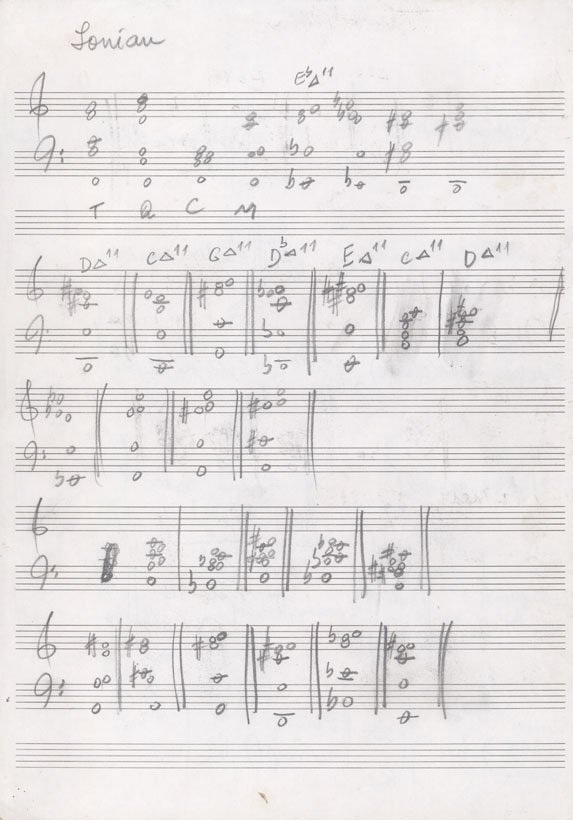 Ionian
E♭△11
T Q C M
D△11 C△11 G△11 D♭△11 E△11 C△11 D△11